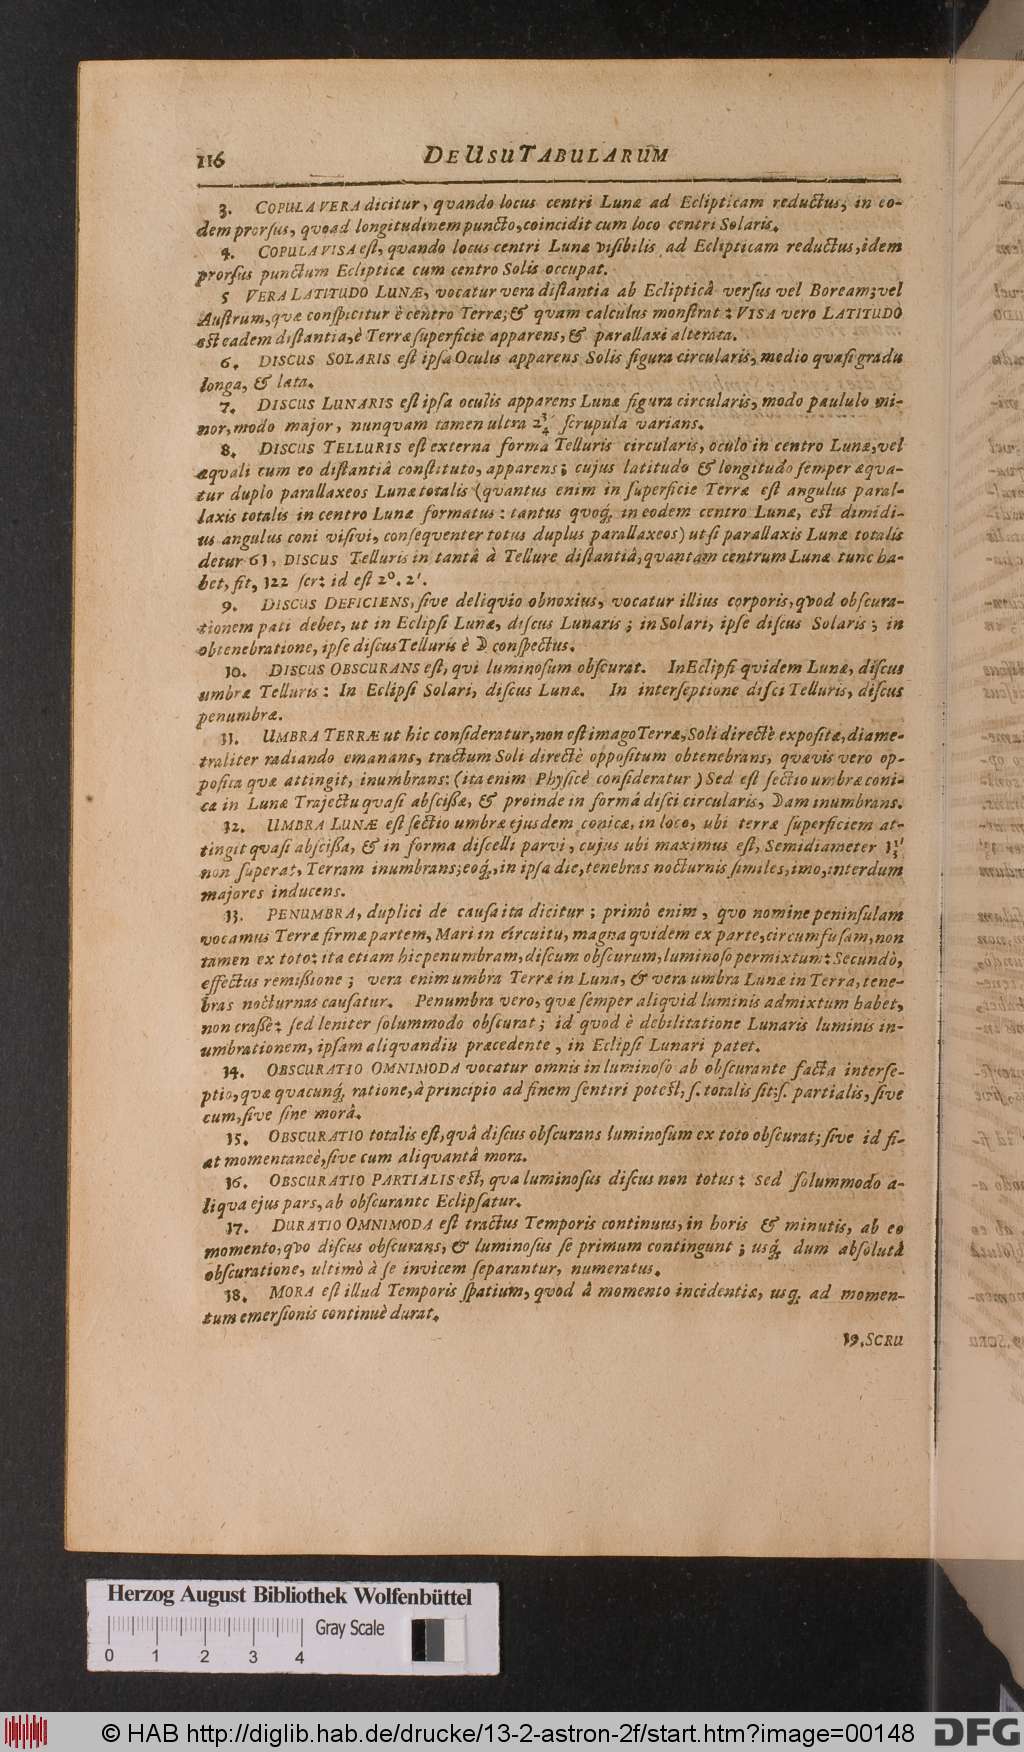 116 DE USU TABULARUM
3. COPULA VERA dicitur, qvando locus centri Lunæ ad Eclipticam reductus, in eo-
dem prorſus, qvoad longitudinem puncto, coincidit cum loco centri Solaris.
4. COPULA VISA eſt, qvando locus centri Lunæ viſibilis ad Eclipticam reductus, idem
prorſus punctum Eclipticæ cum centro Solis occupat.
5 VERA LATITUDO LUNÆ, vocatur vera diſtantia ab Eclipticâ verſus vel Boream; vel
Auſtrum, qvæ conſpicitur è centro Terræ; & qvam calculus monſtrat: VISA vero LATITUDO
eſt eadem diſtantia, è Terræ ſuperficie apparens, & parallaxi alterata.
6. DISCUS SOLARIS eſt ipſa Oculis apparens Solis figura circularis, medio qvaſi gradu
longa, & lata.
7. DISCUS LUNARIS eſt ipſa oculis apparens Lunæ figura circularis, modo paululo mi-
nor, modo major, nunqvam tamen ultra 2¾ ſcrupula varians.
8. DISCUS TELLURIS eſt externa forma Telluris circularis, oculo in centro Lunæ, vel
æqvali cum eo diſtantiâ conſtituto, apparens; cujus latitudo & longitudo ſemper æqva-
tur duplo parallaxeos Lunæ totalis (qvantus enim in ſuperficie Terræ eſt angulus paral-
laxis totalis in centro Lunæ formatus: tantus qvoq́; in eodem centro Lunæ, eſt dimidi-
us angulus coni viſivi, conſeqventer totus duplus parallaxeos) ut ſi parallaxis Lunæ totalis
detur 61, DISCUS Telluris in tantâ à Tellure diſtantiâ, qvantam centrum Lunæ tunc ha-
bet, fit, 122 ſcr: id eſt 2°. 2'.
9. DISCUS DEFICIENS, ſive deliqvio obnoxius, vocatur illius corporis, qvod obſcura-
tionem pati debet, ut in Eclipſi Lunæ, diſcus Lunaris; in Solari, ipſe diſcus Solaris; in
obtenebratione, ipſe diſcus Telluris è ☽ conſpectus.
10. DISCUS OBSCURANS eſt, qvi luminoſum obſcurat. In Eclipſi qvidem Lunæ, diſcus
umbræ Telluris: In Eclipſi Solari, diſcus Lunæ. In interſeptione diſci Telluris, diſcus
penumbræ.
11. UMBRA TERRÆ ut hic conſideratur, non eſt imago Terræ, Soli directè expoſitæ, diame-
traliter radiando emanans, tractum Soli directè oppoſitum obtenebrans, qvævis vero op-
poſita qvæ attingit, inumbrans: (ita enim Phyſicè conſideratur) Sed eſt ſectio umbræ coni-
cæ in Lunæ Trajectu qvaſi abſciſſæ, & proinde in formâ diſci circularis, ☽am inumbrans.
12. UMBRA LUNÆ eſt ſectio umbræ ejusdem conicæ, in loco, ubi terræ ſuperficiem at-
tingit qvaſi abſciſſa, & in forma diſcelli parvi, cujus ubi maximus eſt, Semidiameter 1⅓'
non ſuperat, Terram inumbrans; eoq́;, in ipſa die, tenebras nocturnis ſimiles, imo, interdum
majores inducens.
13. PENUMBRA, duplici de cauſa ita dicitur; primò enim, qvo nomine peninſulam
vocamus Terræ firmæ partem, Mari in circuitu, magna qvidem ex parte, circumfuſam, non
tamen ex toto: ita etiam hic penumbram, diſcum obſcurum, luminoſo permixtum: Secundò,
effectus remiſſione; vera enim umbra Terræ in Luna, & vera umbra Lunæ in Terra, tene-
bras nocturnas cauſatur. Penumbra vero, qvæ ſemper aliqvid luminis admixtum habet,
non craſſè: ſed leniter ſolummodo obſcurat; id qvod è debilitatione Lunaris luminis in-
umbrationem, ipſam aliqvandiu præcedente, in Eclipſi Lunari patet.
14. OBSCURATIO OMNIMODA vocatur omnis in luminoſo ab obſcurante facta interſe-
ptio, qvæ qvacunq́; ratione, à principio ad finem ſentiri poteſt, ſ. totalis ſit; ſ. partialis, ſive
cum, ſive ſine morâ.
15. OBSCURATIO totalis eſt, qvâ diſcus obſcurans luminoſum ex toto obſcurat; ſive id fi-
at momentaneè, ſive cum aliqvantâ mora.
16. OBSCURATIO PARTIALIS eſt, qva luminoſus diſcus non totus: ſed ſolummodo a-
liqva ejus pars, ab obſcurante Eclipſatur.
17. DURATIO OMNIMODA eſt tractus Temporis continuus, in horis & minutis, ab eo
momento, qvo diſcus obſcurans, & luminoſus ſe primum contingunt; usq́; dum abſolutâ
obſcuratione, ultimò à ſe invicem ſeparantur, numeratus.
18. MORA eſt illud Temporis ſpatium, qvod à momento incidentiæ, usq; ad momen-
tum emerſionis continuè durat.
19. SCRU
Herzog August Bibliothek Wolfenbüttel
Gray Scale
0 1 2 3 4
© HAB http://diglib.hab.de/drucke/13-2-astron-2f/start.htm?image=00148 DFG